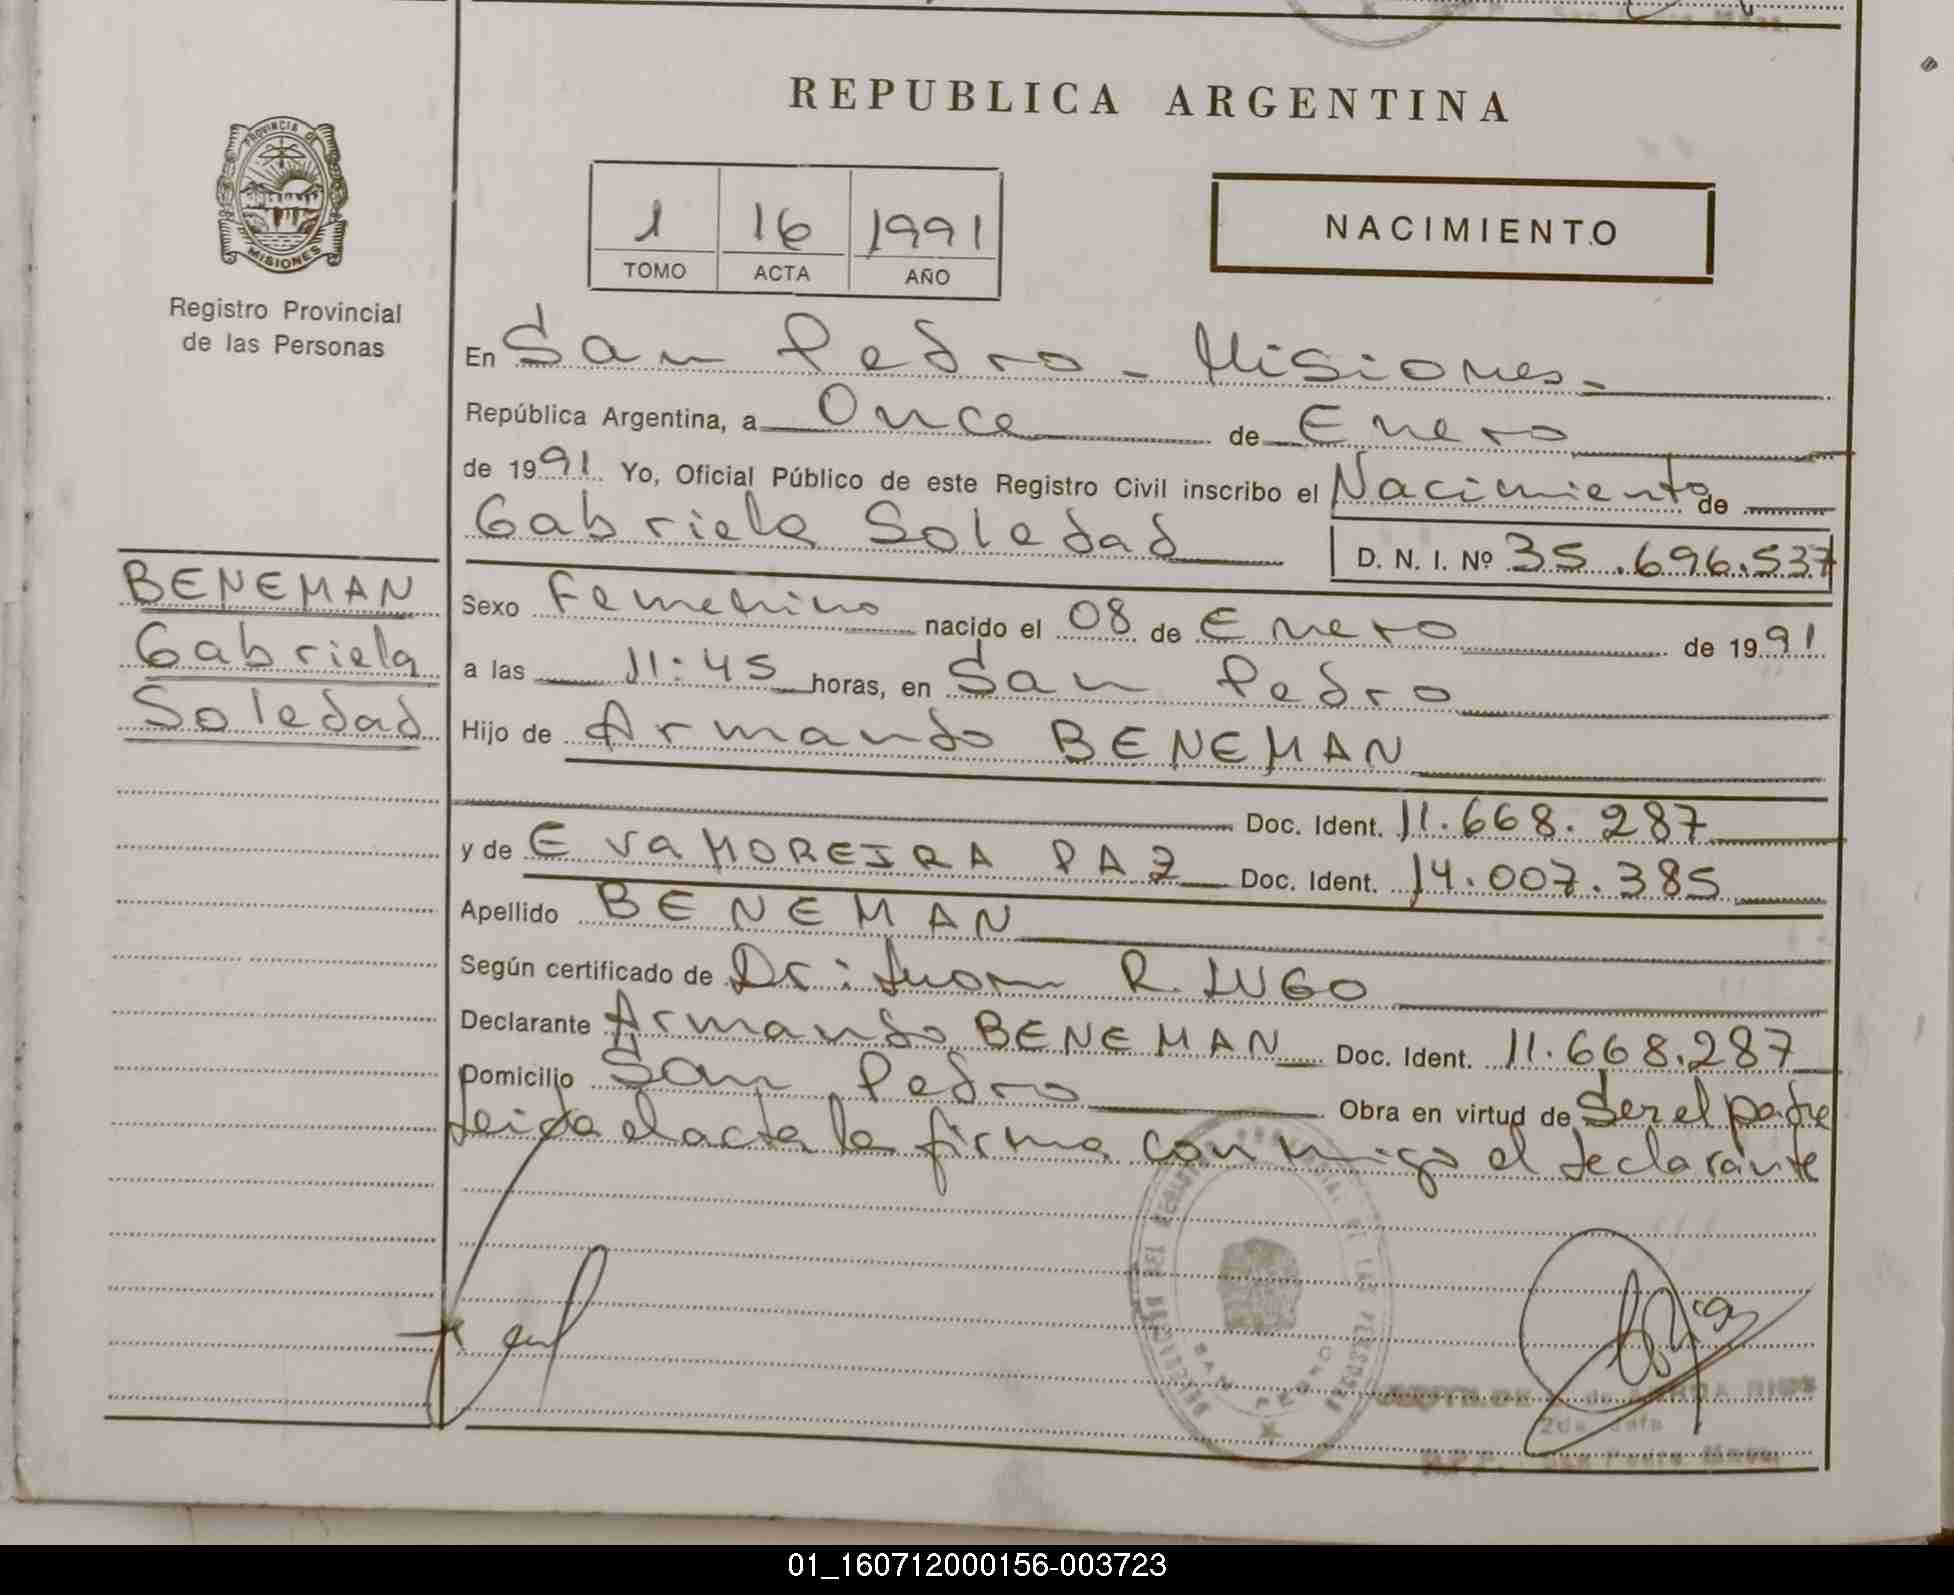 REPUBLICA ARGENTINA
PROVINCIA DE
MISIONES
Registro Provincial
de las Personas
1 16 1991
TOMO ACTA AÑO
NACIMIENTO
En San Pedro - Misiones -
República Argentina, a Once de Enero
de 1991 Yo, Oficial Público de este Registro Civil inscribo el Nacimiento de
Gabriela Soledad
D. N. I. Nº 35.696.537
BENEMAN
Gabriela
Soledad
Sexo Femenino nacido el 08 de Enero de 1991
a las 11:45 horas, en San Pedro
Hijo de Armando BENEMAN
Doc. Ident. 11.668.287
y de Eva MOREIRA PAZ Doc. Ident. 14.007.385
Apellido BENEMAN
Según certificado de Dr: Juan R. LUGO
Declarante Armando BENEMAN Doc. Ident. 11.668.287
Domicilio San Pedro Obra en virtud de Ser el padre
Leida el acta la firma conmigo el declarante
SAN PEDRO
2da Jefa
01_160712000156-003723